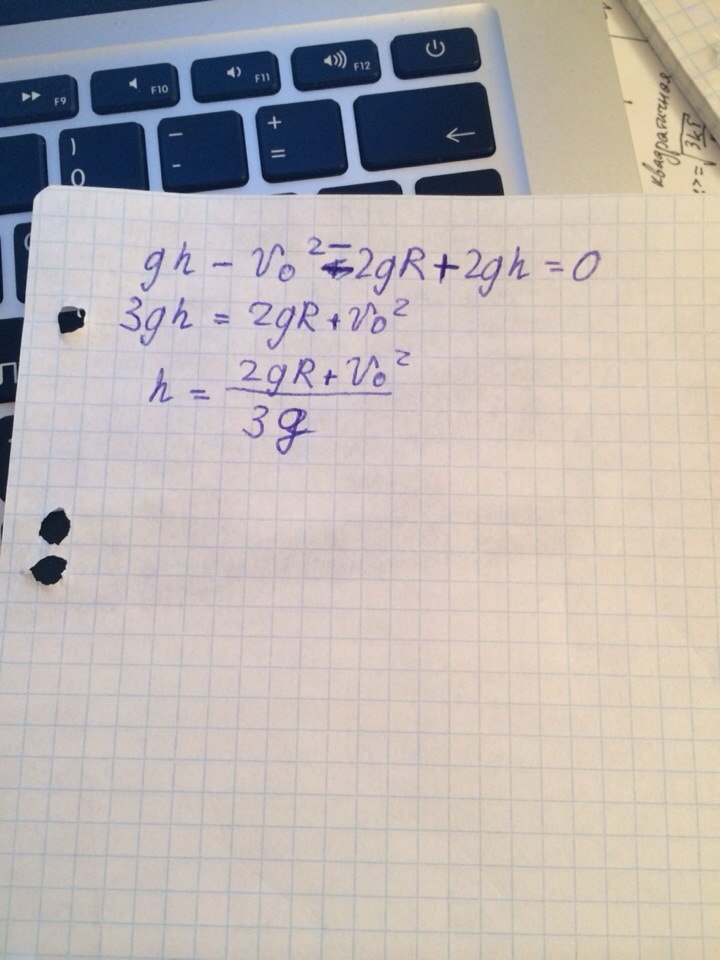 F9 F10 F11 F12
) - + ←
0 - =
квадратичная
>= √3kT
gh - v₀² - 2gR + 2gh = 0
3gh = 2gR + v₀²
h = (2gR + v₀²) / 3g